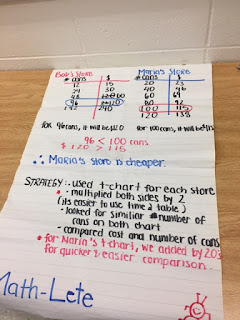 Bob's Store
# cans $
12 15
24 30
48 60
96 $120
192 240
Maria's Store
# cans $
20 23
40 46
60 69
80 92
100 115
120 138
for 96 cans, it will be $120
for 100 cans, it will be $115
96 < 100 cans
$120 > 115
∴ Maria's store is cheaper.
STRATEGY: - used t-chart for each store
* - multiplied both sides by 2
(its easier to use time 2 table)
- looked for similiar # number of
cans on both chart
- compared cost and number of cans
* for Maria's t-chart, we added by 20s
for quicker & easier comparison.
Math-Lete